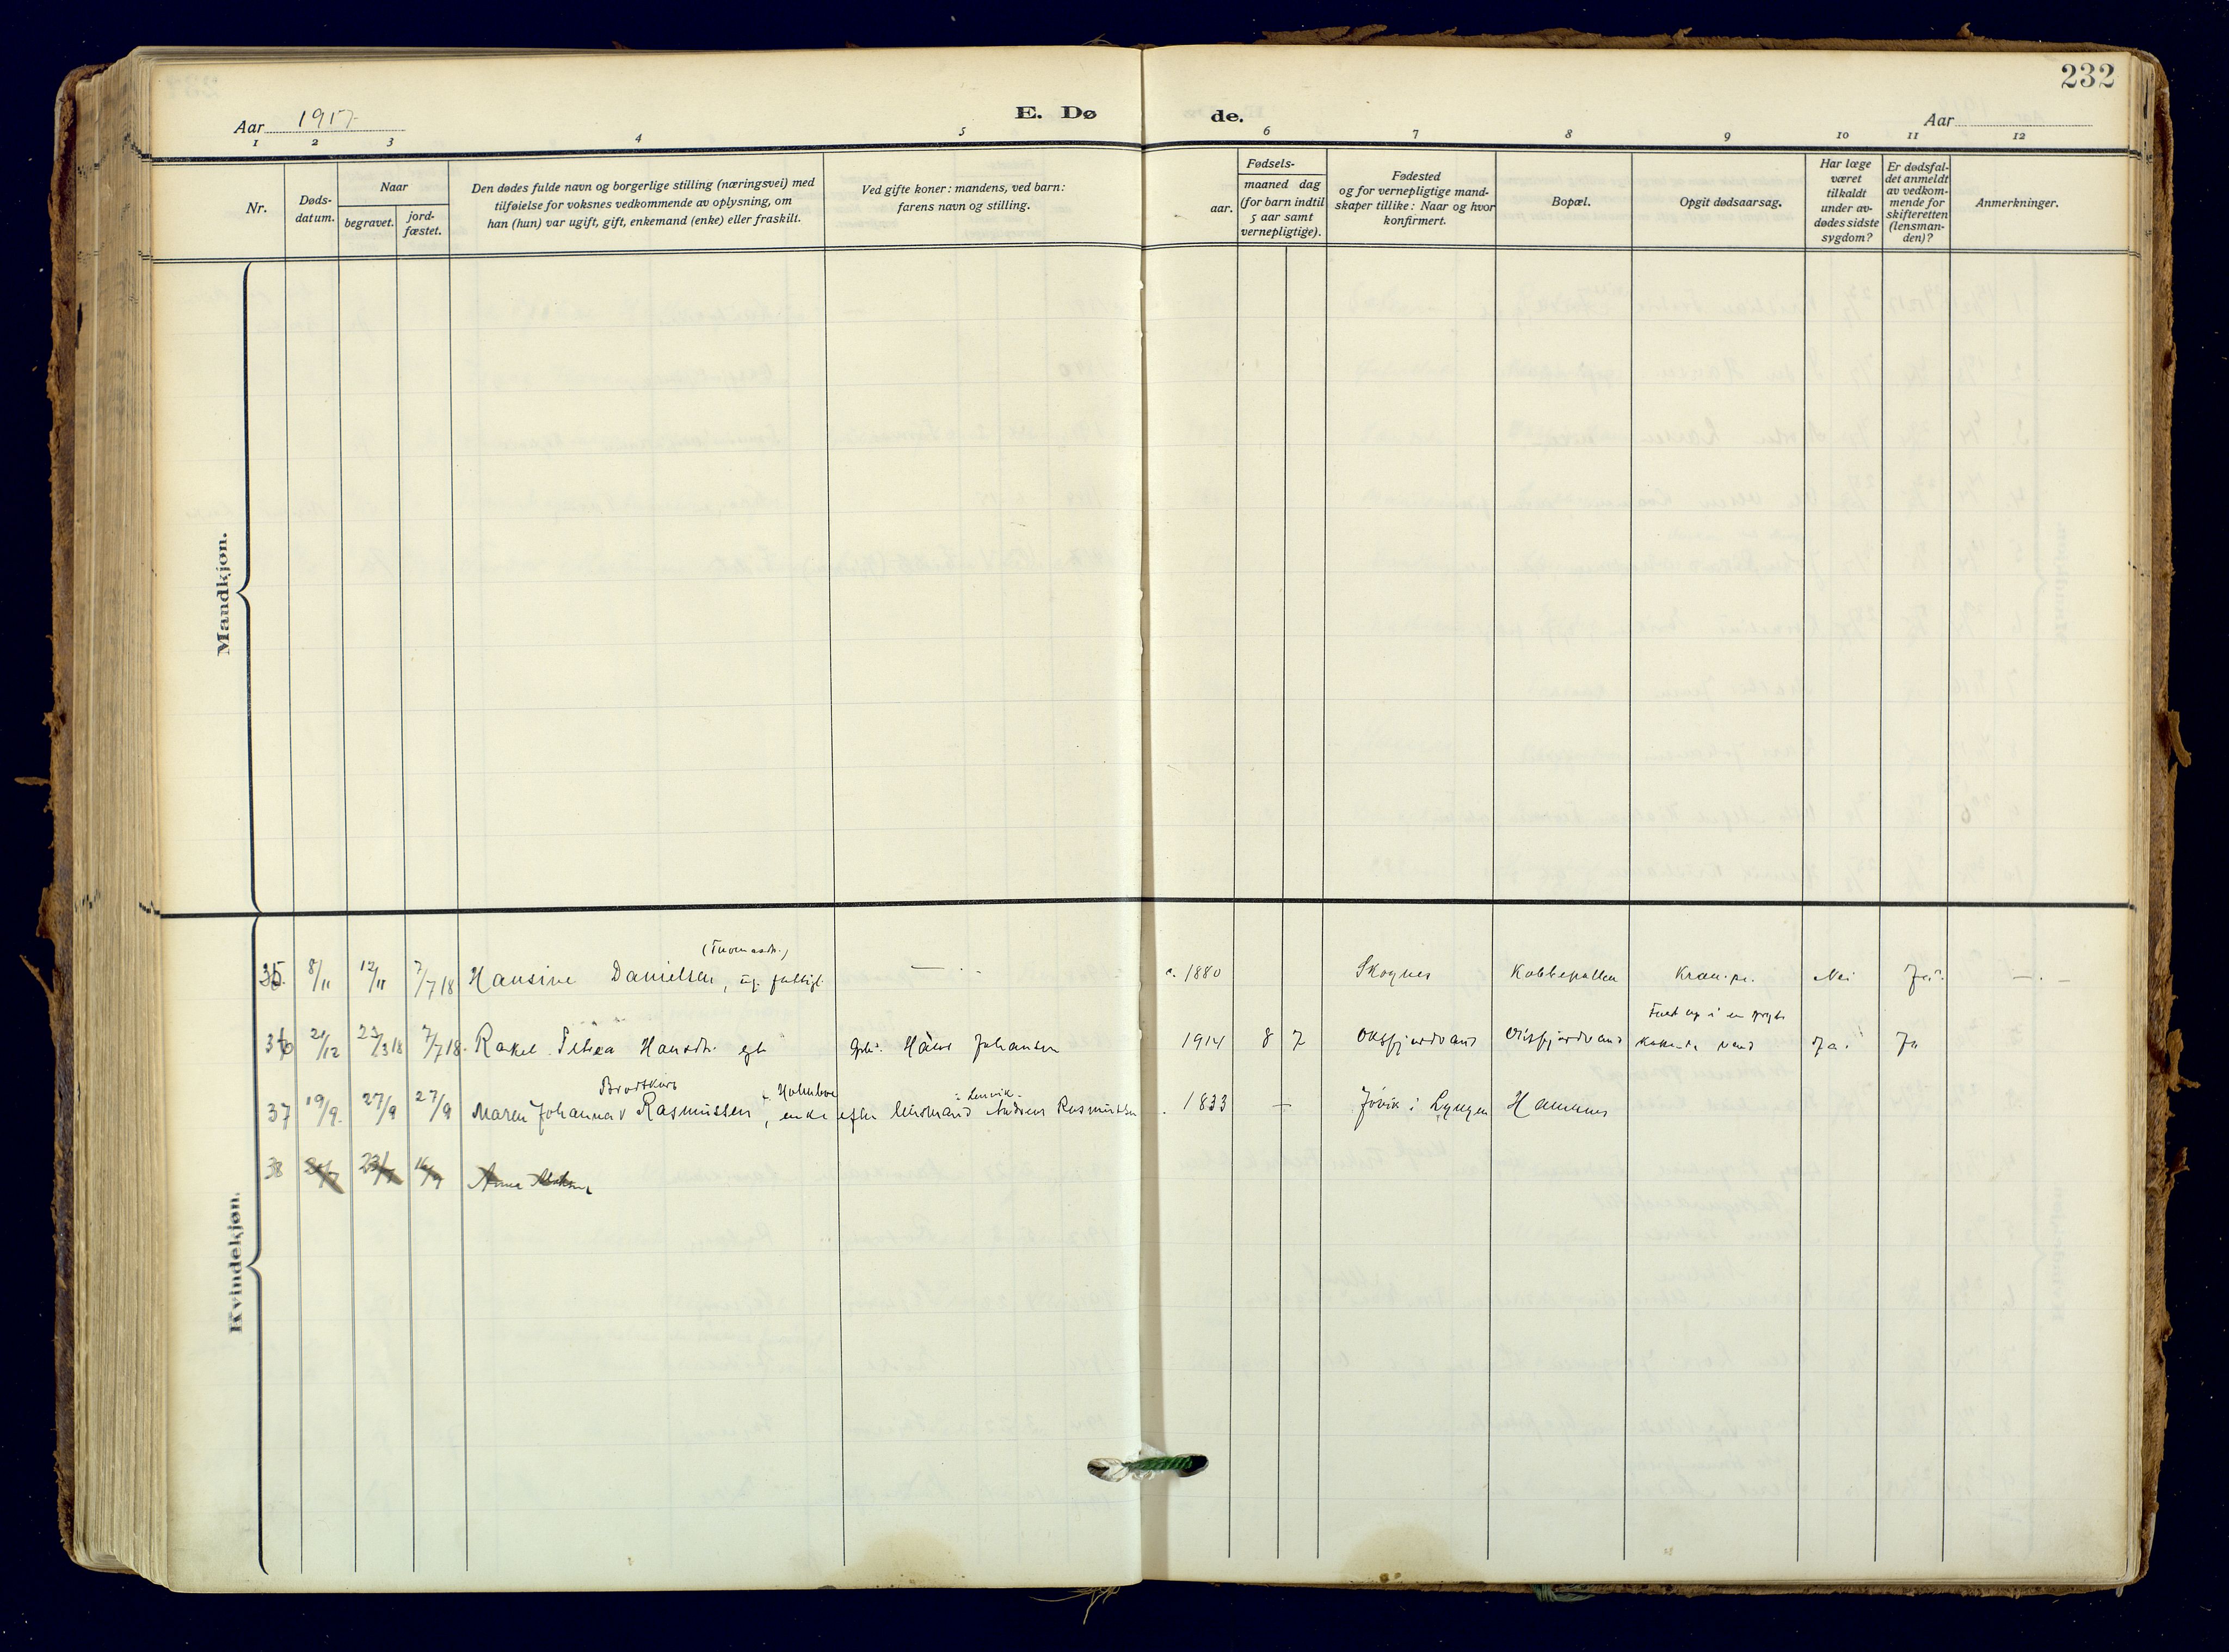 232
Aar 1917
E. Dø
de.
Aar
1 2 3 4 5 6 7 8 9 10 11 12
Nr.
Døds-
datum.
Naar
begravet.
jord-
fæstet.
Den dødes fulde navn og borgerlige stilling (næringsvei) med
tilføielse for voksnes vedkommende av oplysning, om
han (hun) var ugift, gift, enkemand (enke) eller fraskilt.
Ved gifte koner: mandens, ved barn:
farens navn og stilling.
aar.
Fødsels-
maaned dag
(for barn indtil
5 aar samt
vernepligtige).
Fødested
og for vernepligtige mand-
skaper tillike: Naar og hvor
konfirmert.
Bopæl.
Opgit dødsaarsag.
Har læge
været
tilkaldt
under av-
dødes sidste
sygdom?
Er dødsfal-
det anmeldt
av vedkom-
mende for
skifteretten
(lensman-
den)?
Anmerkninger.
Mandkjøn.
Kvindekjøn.
(Thomasdtr.)
35. 8/11 12/11 7/7 18 Hansine Danielsen, ug. fattigl. — c. 1880 Skognes Kobbepollen Krampe. Nei Ja. —
36 21/12 23/3 18 7/7 18. Rakel Hansdtr. Hans Johansen 1914 8 7 Oksfjordvand Oksfjordvand kokende vand Ja. Ja
37 19/9. 27/9 27/9 Maren Johanna Rasmussen, enke efter Andreas Rasmussen 1833 — Jøvik i Lyngen Hamnnes
38 23/7 Anna